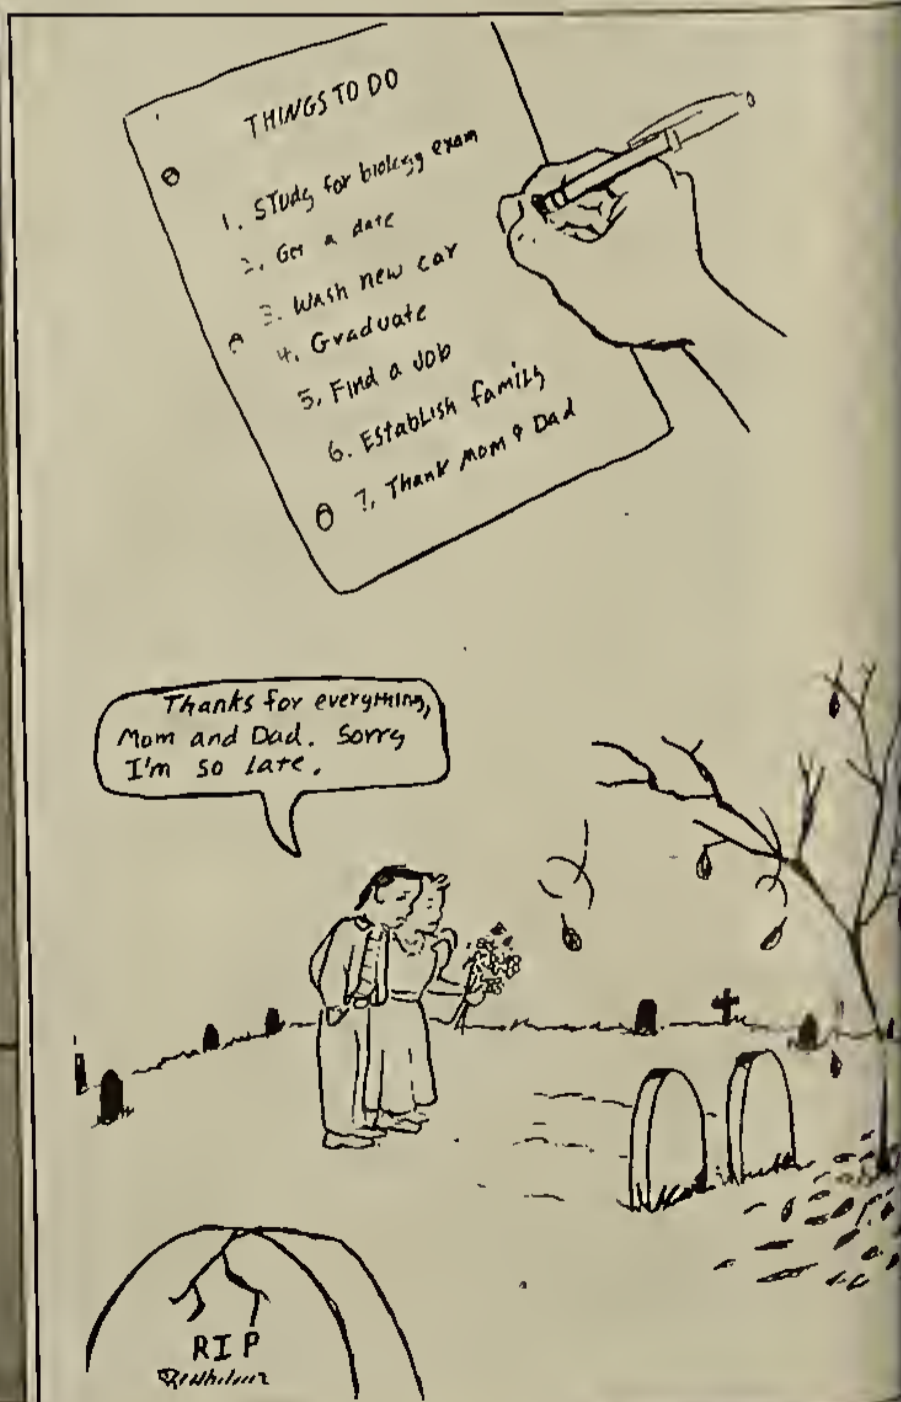 THINGS TO DO
1. STUdy for biology exam
2. Get a date
3. Wash new car
4. Graduate
5. Find a Job
6. Establish family
7. Thank Mom & Dad
Thanks for everything,
Mom and Dad. Sorry
I'm so late.
RIP